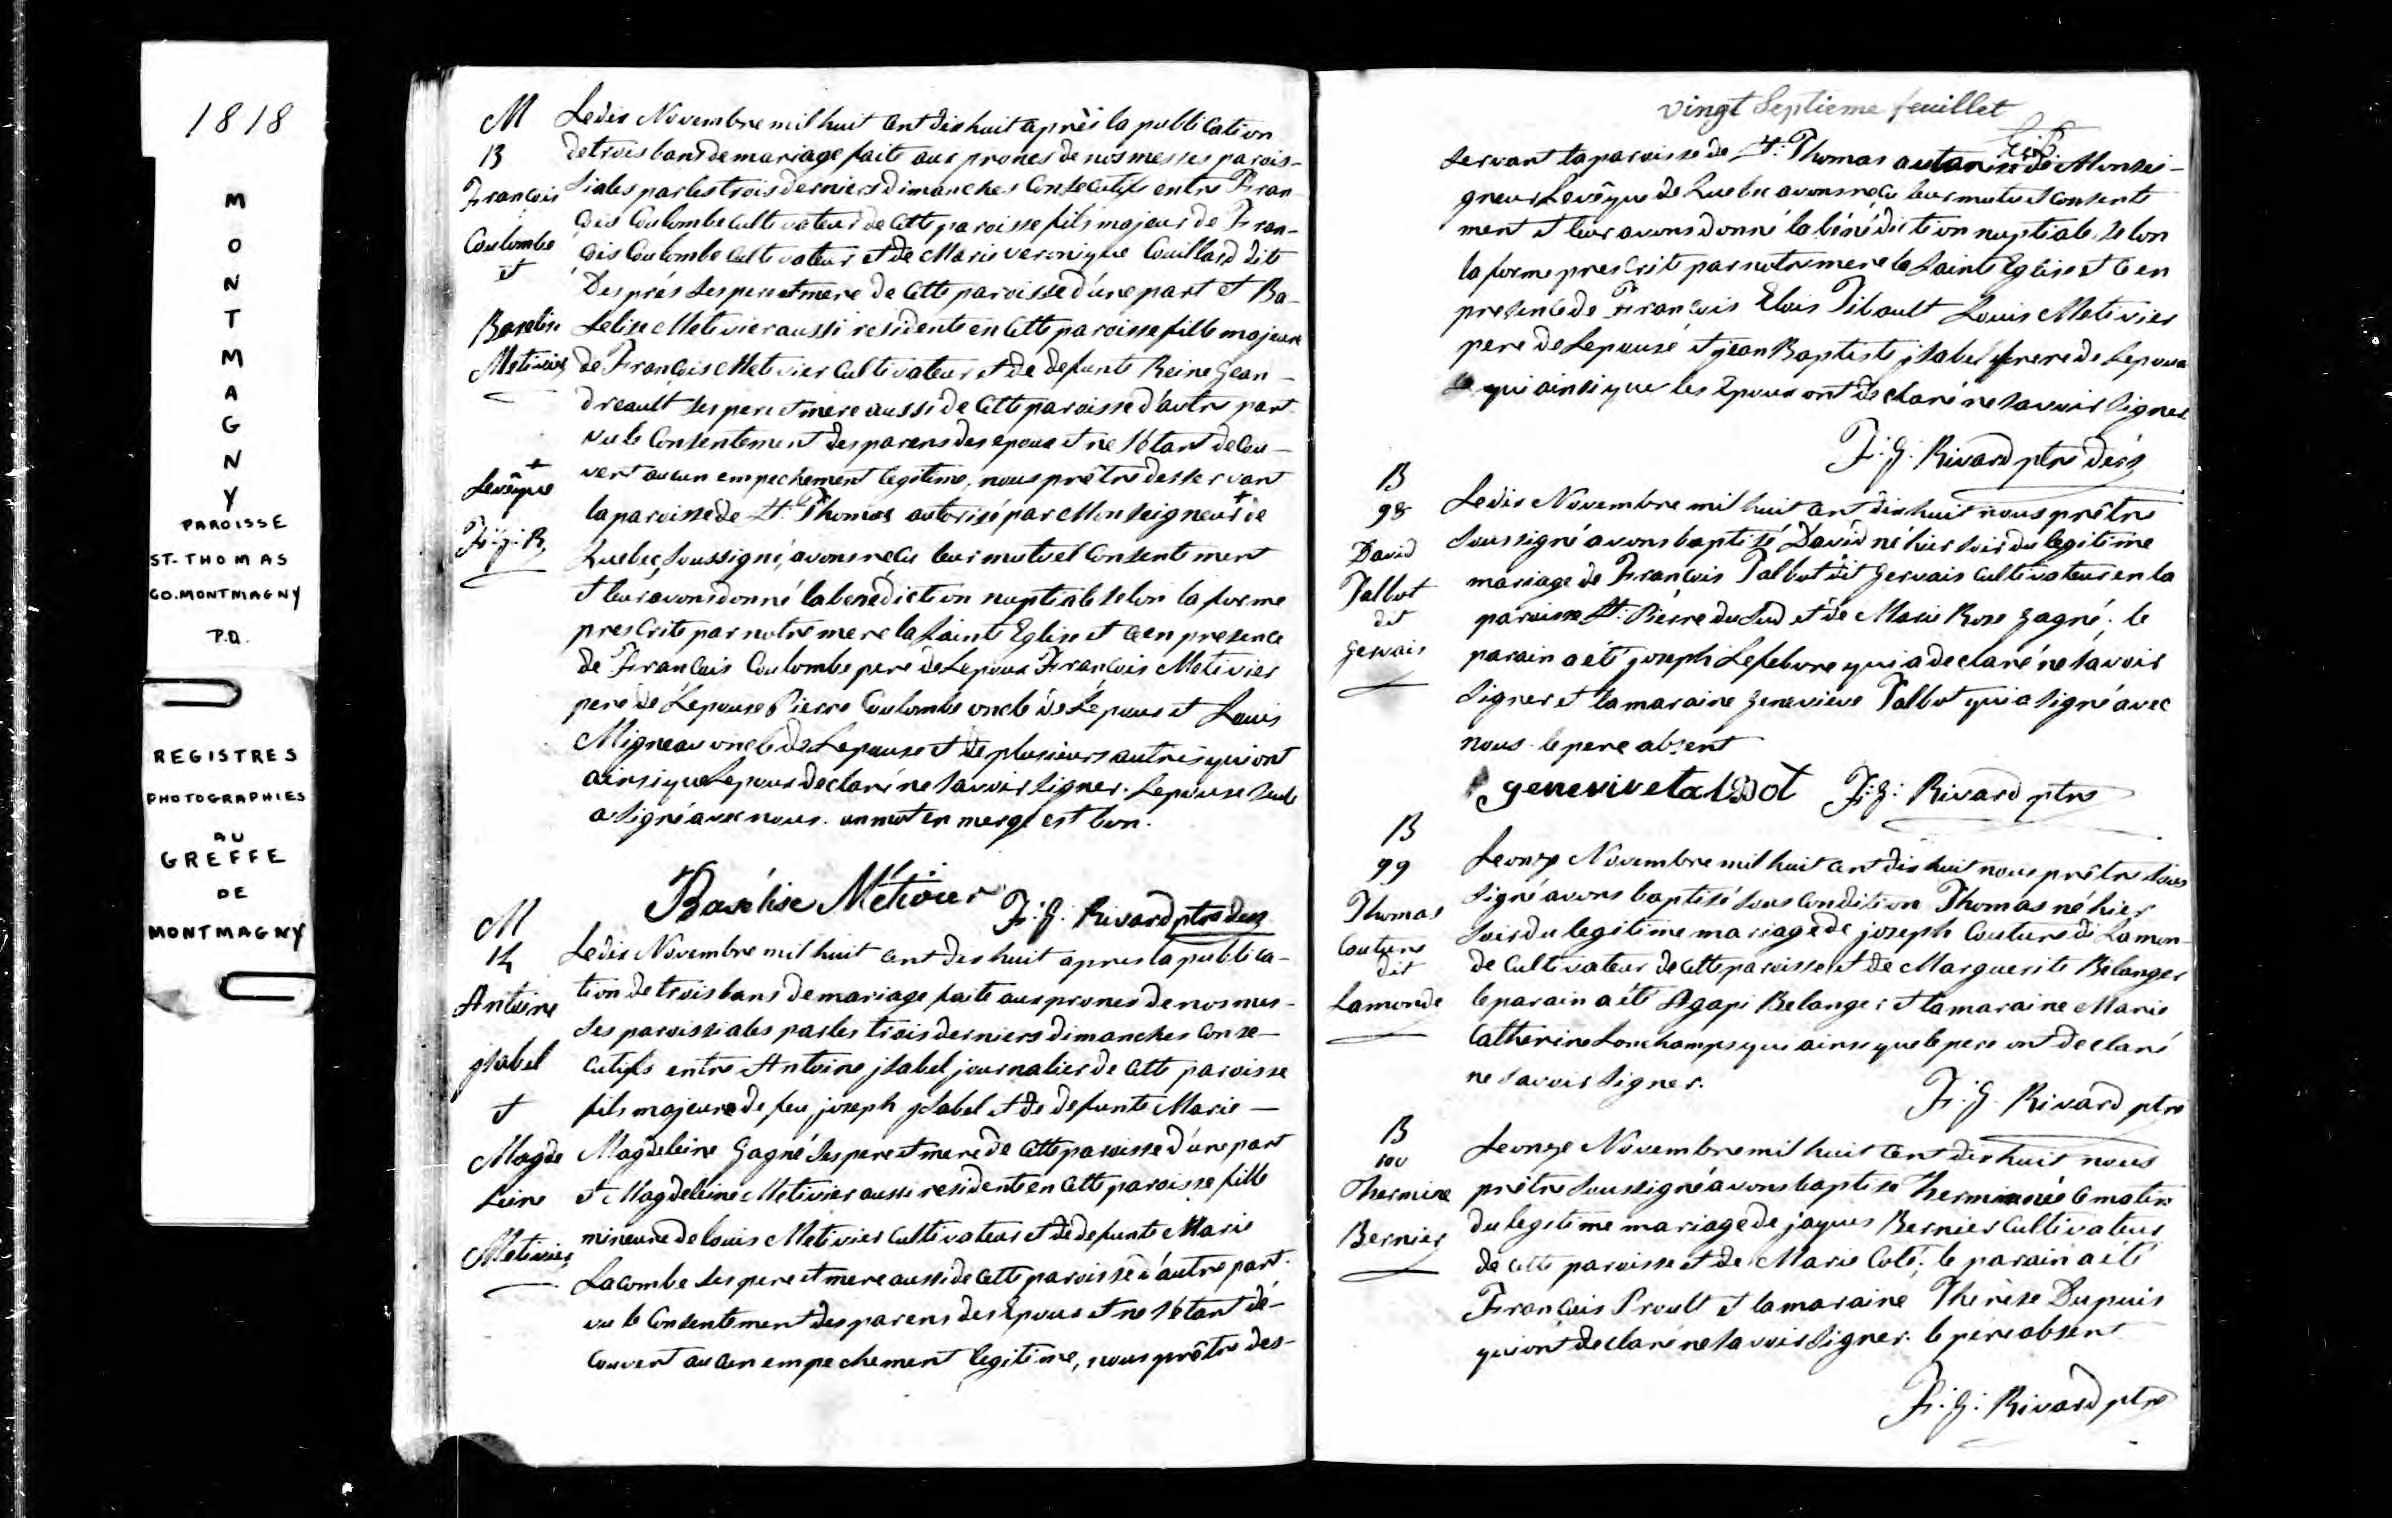 1818
MONTMAGNY
PAROISSE
ST-THOMAS
CO. MONTMAGNY
P.Q.
REGISTRES
PHOTOGRAPHIES
AU
GREFFE
DE
MONTMAGNY
M
13
François
Coulombe
et
Baselise
Metivier
Levêque +
F. G. R.
Le dix Novembre mil huit cent dix huit après la publication
de trois bans de mariage faite aux prones de nos messes parois-
siales par les trois derniers dimanches consecutifs entre Fran-
çois Coulombe cultivateur de cette paroisse fils majeur de Fran-
çois Coulombe cultivateur et de Marie Veronique Couillard dit
Després ses pere et mere de cette paroisse d'une part et Ba-
selise Metivier aussi residente en cette paroisse fille majeure
de François Metivier cultivateur et de defunte Reine Gean-
dreault ses pere et mere aussi de cette paroisse d'autre part
vu le consentement des parens des epoux et ne s'étant decou-
vert aucun empechement legitime, nous prêtre desservant
la paroisse de St. Thomas autorisé par Monseigneur + de
Quebec, soussigné, avons reçu leur mutuel consentement
et leur avons donné la bénédiction nuptiale selon la forme
prescrite par notre mere la Sainte Eglise et ce en presence
de François Coulombe pere de Lepoux François Metivier
pere de L'épouse Pierre Coulombe oncle de Lepoux et Louis
Migneau oncle de Lepouse et de plusieurs autres qui ont
ainsi que Lepoux declaré ne savoir signer. Lepouse seule
a signé avec nous. un mot en marge est bon.
Basélise Métivier F. G. Rivard ptre dess
M
14
Antoine
jsabel
et
Magde
leine
Metivier
Le dix Novembre mil huit cent dix huit apres la publica-
tion de trois bans de mariage faite aux prones de nos mes-
ses paroissiales par les trois derniers dimanches conse-
cutifs entre Antoine jsabel journalier de cette paroisse
fils majeur de feu joseph jsabel et de defunte Marie-
Magdeleine Gagné ses pere et mere de cette paroisse d'une part
et Magdeleine Metivier aussi residente en cette paroisse fille
mineure de Louis Metivier cultivateur et de defunte Marie
Lacombe ses pere et mere aussi de cette paroisse d'autre part.
vu le consentement des parens des Epoux et ne s'étant dé-
couvert aucun empechement legitime, nous prêtre des-
vingt Septieme feuillet
servant la paroisse de St. Thomas autorisé de Monsei-
gneur Levêque de Quebec avons reçu leur mutuel consente
ment et leur avons donné la bénédiction nuptiale selon
la forme prescrite par notre mere la Sainte Eglise et ce en
presence de François Elois Tibault Louis Metivier
pere de Lepouse et jean Baptiste jsabel frere de Lepoux
qui ainsi que les epoux ont declaré ne savoir signer
F. G. Rivard ptre dess
B
98
David
Talbot
dit
Gervais
Le dix Novembre mil huit cent dix huit nous prêtre
soussigné avons baptisé David né hier soir du legitime
mariage de François Talbot dit Gervais cultivateur en la
paroisse St. Pierre du Sud et de Marie Rose Gagné; le
parain a été joseph Lefebvre qui a declaré ne savoir
signer et la maraine Genevieve Talbot qui a signé avec
nous. le pere absent
genevive talBot F. G. Rivard ptre
B
99
Thomas
Couture
dit
Lamonde
Le onze Novembre mil huit cent dix huit nous prêtre sous
signé avons baptisé sous condition Thomas né hier
soir du legitime mariage de joseph Couture dt Lamon-
de cultivateur de cette paroisse et de Marguerite Belanger
le parain a été Agapi Belanger et la maraine Marie
Catherine Lonchamps qui ainsi que le pere ont declaré
ne savoir signer.
F. G. Rivard ptre
B
100
Thermine
Bernier
Le onze Novembre mil huit cent dix huit nous
prêtre soussigné avons baptisé Thermine née ce matin
du legitime mariage de jaques Bernier cultivateur
de cette paroisse et de Marie Coté; le parain a été
François Proult et la maraine Thérèse Dupuis
qui ont declaré ne savoir signer. le pere absent
F. G. Rivard ptre